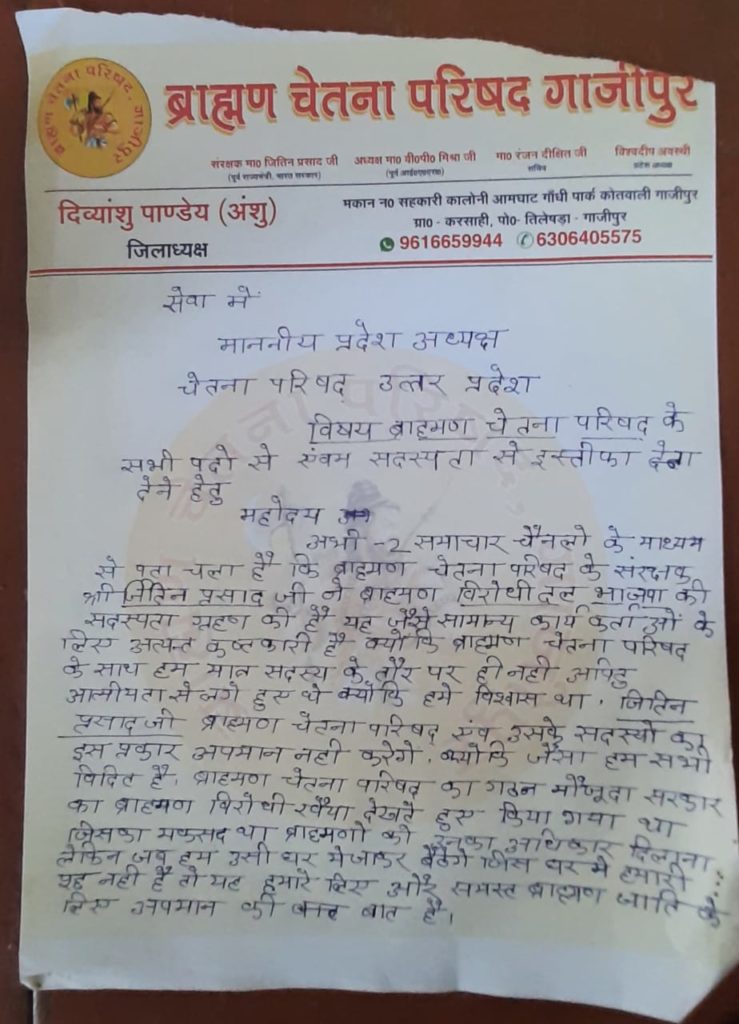 ब्राह्मण चेतना परिषद गाजीपुर
ब्राह्मण चेतना परिषद गाजीपुर
संरक्षक मा0 जितिन प्रसाद जी अध्यक्ष मा0 वी0पी0 मिश्रा जी मा0 रंजन दीक्षित जी विश्वदीप अवस्थी
(पूर्व राज्यमंत्री, भारत सरकार) सचिव प्रदेश अध्यक्ष
दिव्यांशु पाण्डेय (अंशु)
जिलाध्यक्ष
मकान न0 सहकारी कालोनी आमघाट गाँधी पार्क कोतवाली गाजीपुर
ग्रा0 - करसाही, पो0- तिलेषड़ा - गाजीपुर
9616659944 6306405575
सेवा में
माननीय प्रदेश अध्यक्ष
चेतना परिषद् उत्तर प्रदेश
विषय ब्राहमण चेतना परिषद के
सभी पदो से एंवम सदस्यता से इस्तीफा देना
देने हेतु
महोदय
अभी -2 समाचार चैनलो के माध्यम
से पता चला है कि ब्राहमण चेतना परिषद के संरक्षक
श्री जितिन प्रसाद जी ने ब्राहमण विरोधी दल भाजपा की
सदस्यता ग्रहण की है यह जैसे सामान्य कार्यकर्ताओं के
लिए अत्यन्त कष्टकारी है क्योंकि ब्राहमण चेतना परिषद
के साथ हम मात्र सदस्य के तौर पर ही नही अपितु
आत्मीयता से लगे हुए थे क्योंकि हमे विश्वास था, जितिन
प्रसाद जी ब्राहमण चेतना परिषद् एंव उसके सदस्यो का
इस प्रकार अपमान नही करेगे. क्योंकि जैसा हम सभी
विदित है। ब्राहमण चेतना परिषद का गठन मौजूदा सरकार
का ब्राहमण विरोधी रवैया देखते हुए किया गया था
जिसका मकसद था ब्राहमणो को उनका अधिकार दिलाना
लेकिन जब हम उसी घर मे जाकर बैठेगे जिस घर मे हमारी
नही है तो यह हमारे लिए और समस्त ब्राहमण जाति के
लिए अपमान की बात है।